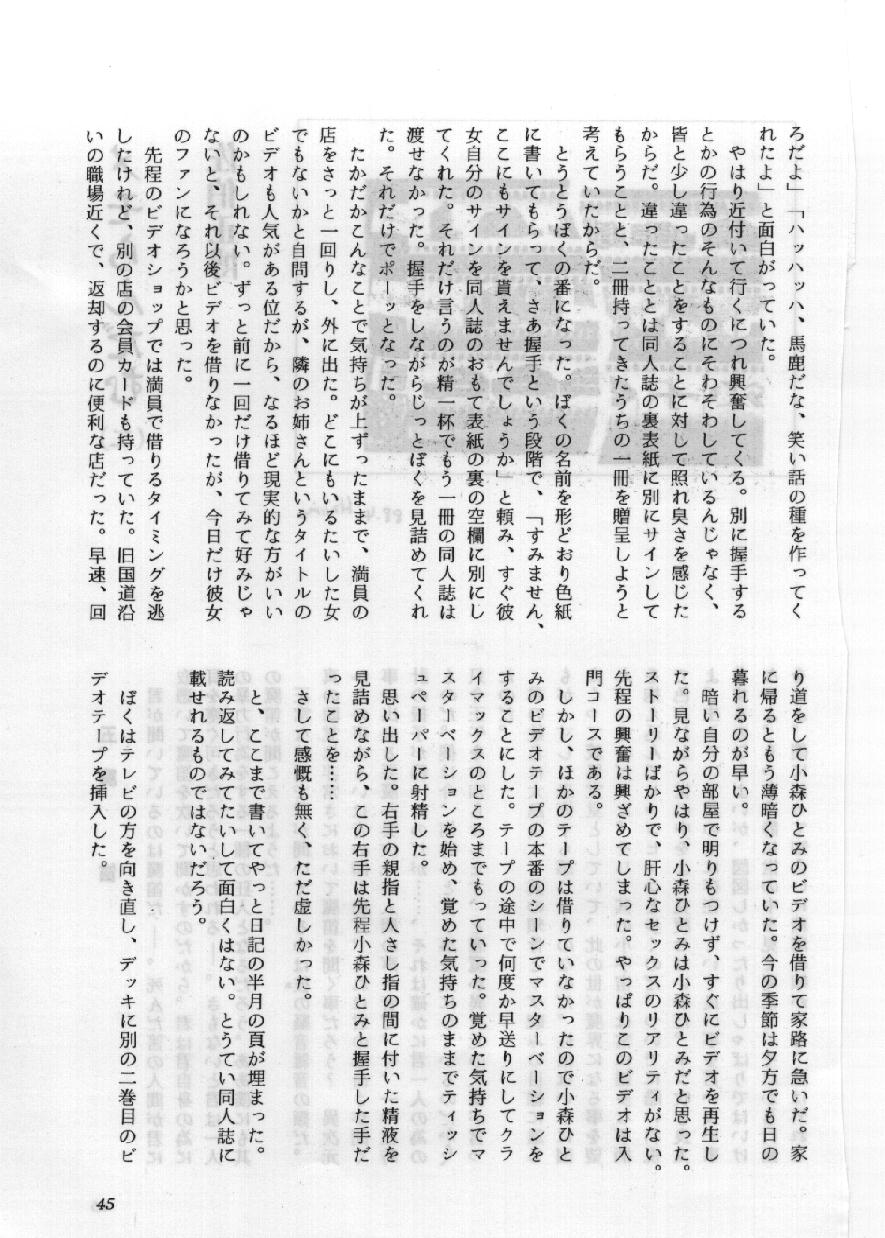 ろだよ」「ハッハッハ、馬鹿だな、笑い話の種を作ってく
れたよ」と面白がっていた。
やはり近付いて行くにつれ興奮してくる。別に握手する
とかの行為のそんなものにそわそわしているんじゃなく、
皆と少し違ったことをすることに対して照れ臭さを感じた
からだ。違ったこととは同人誌の裏表紙に別にサインして
もらうことと、二冊持ってきたうちの一冊を贈呈しようと
考えていたからだ。
とうとうぼくの番になった。ぼくの名前を形どおり色紙
に書いてもらって、さあ握手という段階で、「すみません、
ここにもサインを貰えませんでしょうか」と頼み、すぐ彼
女自分のサインを同人誌のおもて表紙の裏の空欄に別にし
てくれた。それだけ言うのが精一杯でもう一冊の同人誌は
渡せなかった。握手をしながらじっとぼくを見詰めてくれ
た。それだけでポーッとなった。
たかだかこんなことで気持ちが上ずったままで、満員の
店をさっと一回りし、外に出た。どこにもいるたいした女
でもないかと自問するが、隣のお姉さんというタイトルの
ビデオも人気がある位だから、なるほど現実的な方がいい
のかもしれない。ずっと前に一回だけ借りてみて好みじゃ
ないと、それ以後ビデオを借りなかったが、今日だけ彼女
のファンになろうかと思った。
先程のビデオショップでは満員で借りるタイミングを逃
したけれど、別の店の会員カードも持っていた。旧国道沿
いの職場近くで、返却するのに便利な店だった。早速、回
り道をして小森ひとみのビデオを借りて家路に急いだ。家
に帰るともう薄暗くなっていた。今の季節は夕方でも日の
暮れるのが早い。
暗い自分の部屋で明りもつけず、すぐにビデオを再生し
た。見ながらやはり、小森ひとみは小森ひとみだと思った。
ストーリーばかりで、肝心なセックスのリアリティがない。
先程の興奮は興ざめてしまった。やっぱりこのビデオは入
門コースである。
しかし、ほかのテープは借りていなかったので小森ひと
みのビデオテープの本番のシーンでマスターベーションを
することにした。テープの途中で何度か早送りにしてクラ
イマックスのところまでもっていった。覚めた気持ちでマ
スターベーションを始め、覚めた気持ちのままでティッシ
ュペーパーに射精した。
思い出した。右手の親指と人さし指の間に付いた精液を
見詰めながら、この右手は先程小森ひとみと握手した手だ
ったことを……
さして感慨も無く、ただ虚しかった。
と、ここまで書いてやっと日記の半月の頁が埋まった。
読み返してみてたいして面白くはない。とうてい同人誌に
載せれるものではないだろう。
ぼくはテレビの方を向き直し、デッキに別の二巻目のビ
デオテープを挿入した。
45